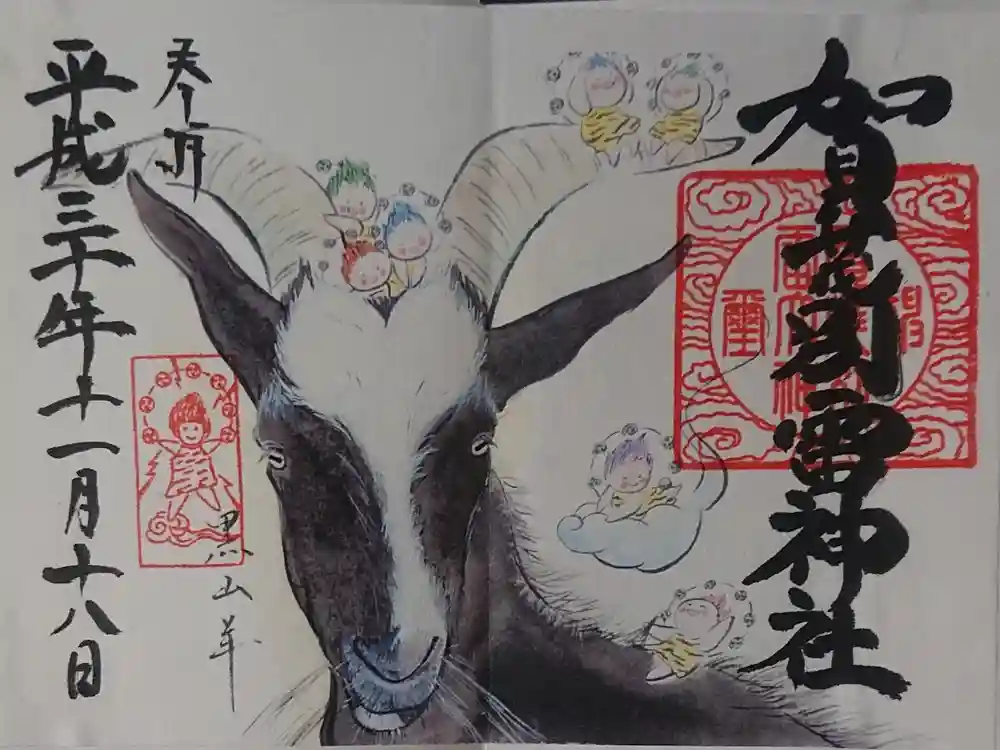 賀茂別雷神社
奉拝
平成三十年十一月十八日
黒山羊